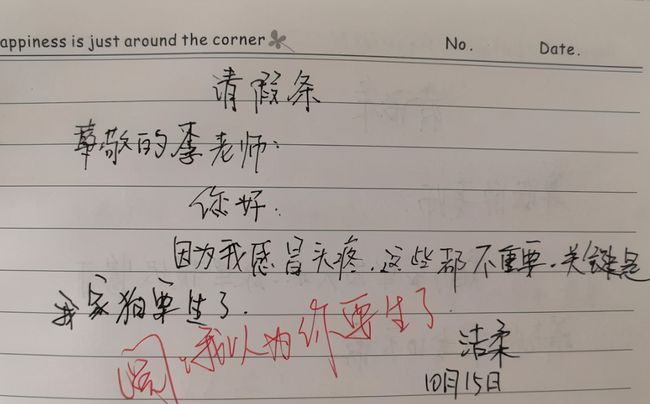 appiness is just around the corner No. Date.
请假条
尊敬的李老师:
你好:
因为我感冒头疼.这些都不重要.关键是
我家狗要生了.
我以为你要生了
洁柔
10月15日